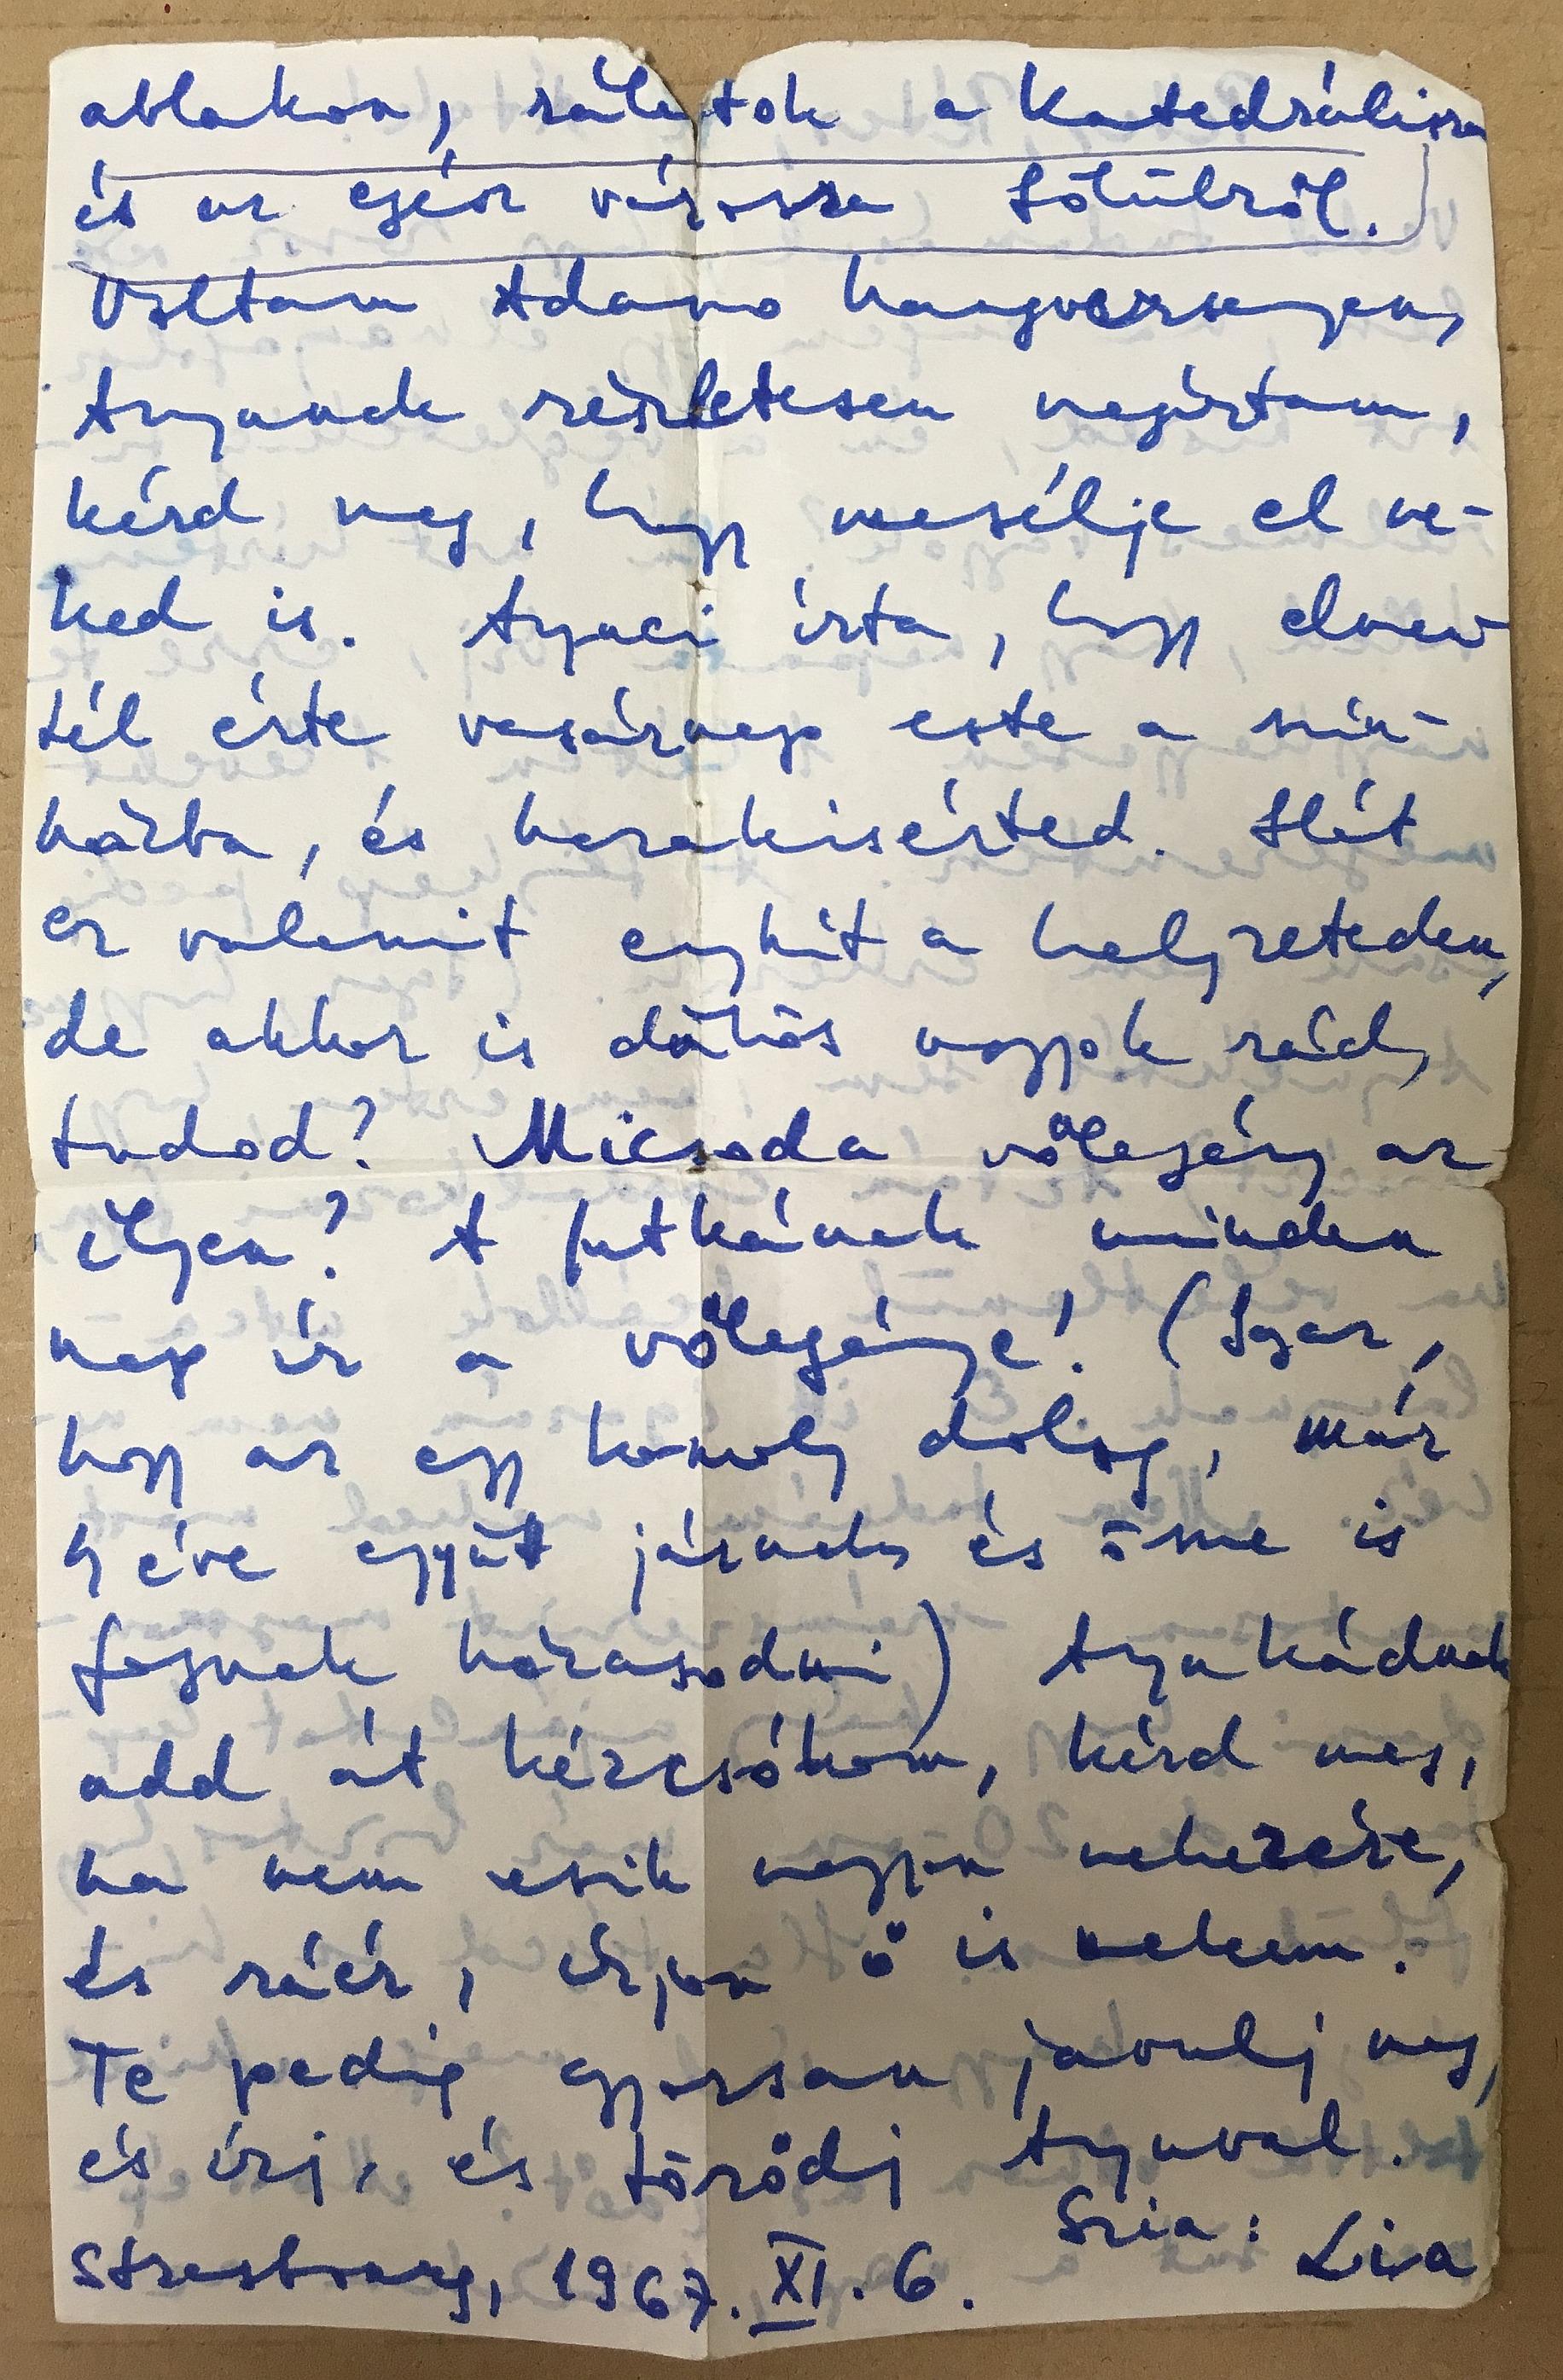 ablakon, rálátok a Katedrálisra
és az egész városra fölülről.
Voltam Adamo hangversenyen,
Anyunak részletesen megírtam,
kérd meg, hogy mesélje el ne-
ked is. Anyuci írta, hogy elmen-
tél érte vasárnap este a szín-
házba, és hazakisérted. Hát
ez valamit enyhít a helyzeteden,
de akkor is dühös vagyok rád,
tudod? Micsoda vőlegény az
ilyen? A Jutkának minden
nap ír a vőlegénye! (Igaz,
hogy az egy komoly dolog, már
4 éve együtt járnak, és össze is
fognak házasodni) Anyukádnak
add át kézcsókom, kérd meg,
ha nem esik nagyon nehezére,
és ráér, írjon ő is nekem.
Te pedig gyorsan javulj meg,
és írj, és törődj Anyuval.
Szia: Liva
Strasbourg, 1967. XI. 6.